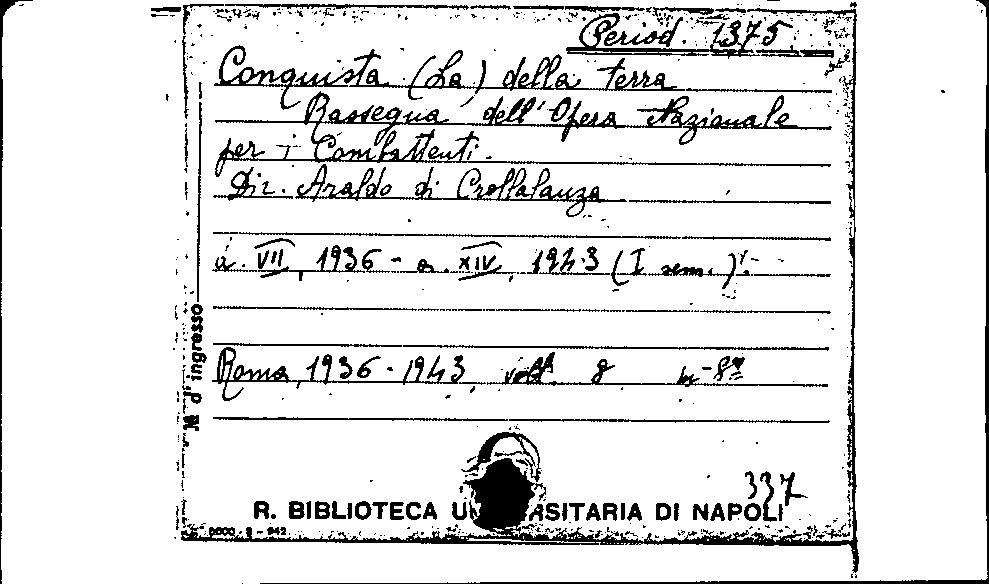 Period. 1375.
Conquista (La) della terra
Rassegna dell'Opera Nazionale
per i Combattenti.
Dir. Araldo di Crollalanza
a. VII, 1936 - a. XIV, 1943 (I sem.).
Roma, 1936 - 1943, voll. 8 in-8º
N d'ingresso
337
R. BIBLIOTECA UNIVERSITARIA DI NAPOLI